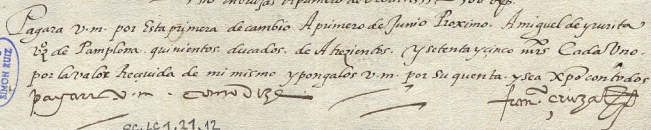 Pagara v.m. por Esta primera de cambio A primero de Junio Proximo. A miguel de yrurita
vzº de Pamplona. quinientos. ducados. de A trezientos. y setenta y cinco mrs Cada Uno.
por la valor Reçiuida de mi mismo y pongalos v.m. por su quenta. y sea Xpo con todos
pagara v.m. como dize
franco
SIMON RUIZ